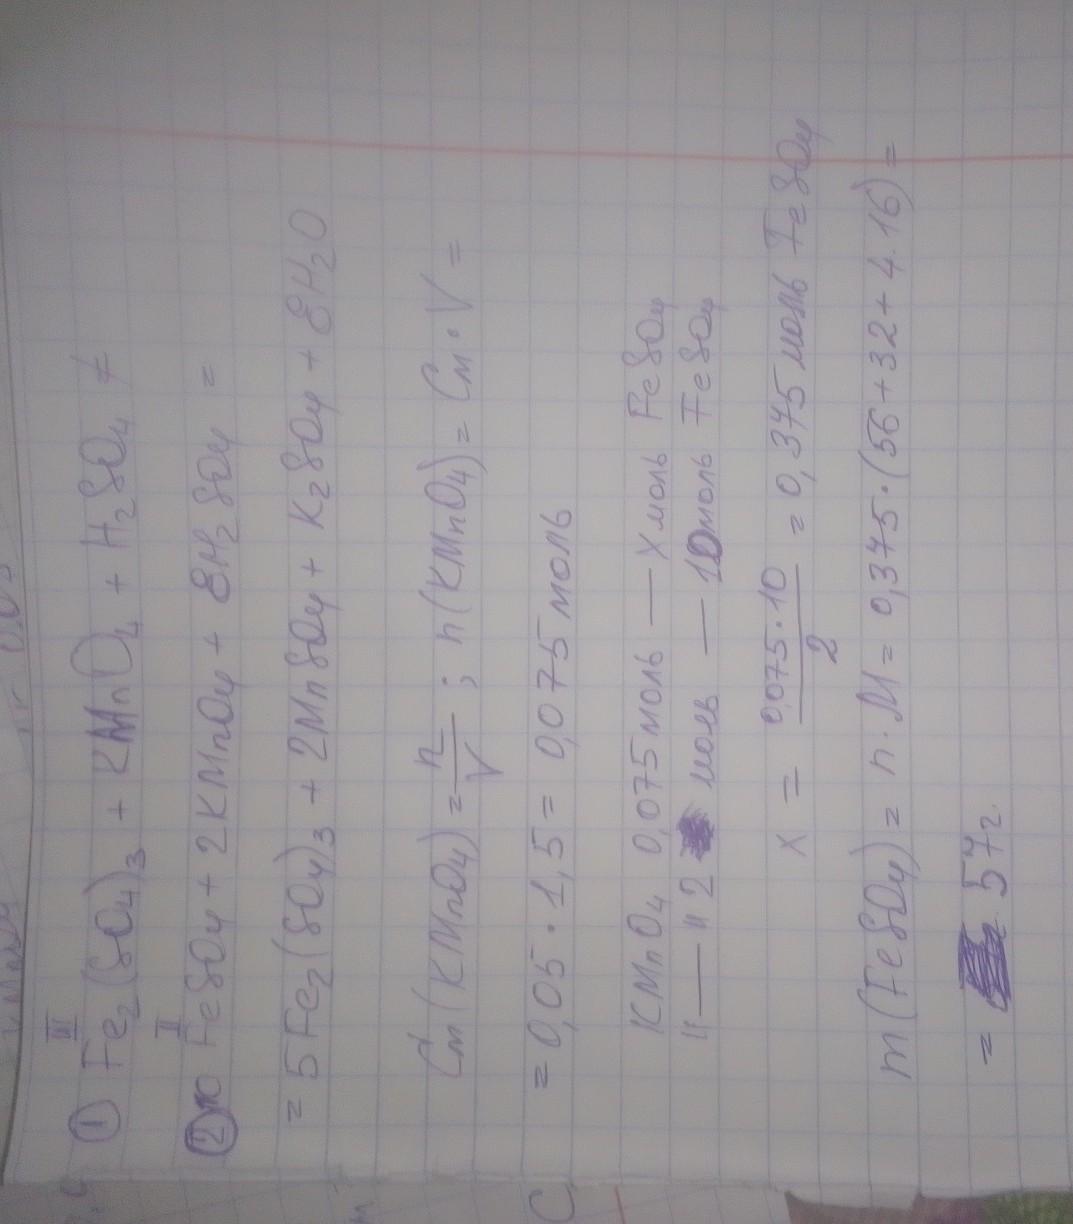 ① Fe₂(SO₄)₃ + KMnO₄ + H₂SO₄ ≠
III
② 10 FeSO₄ + 2KMnO₄ + 8H₂SO₄ =
II
= 5Fe₂(SO₄)₃ + 2MnSO₄ + K₂SO₄ + 8H₂O
Cм(KMnO₄) = n/V ; n(KMnO₄) = Cм · V =
= 0,05 · 1,5 = 0,075 моль
KMnO₄ 0,075 моль — x моль FeSO₄
"—" 2 моль — 10 моль FeSO₄
x = 0,075 · 10 / 2 = 0,375 моль FeSO₄
m(FeSO₄) = n · M = 0,375 · (56 + 32 + 4 · 16) =
= 57 г